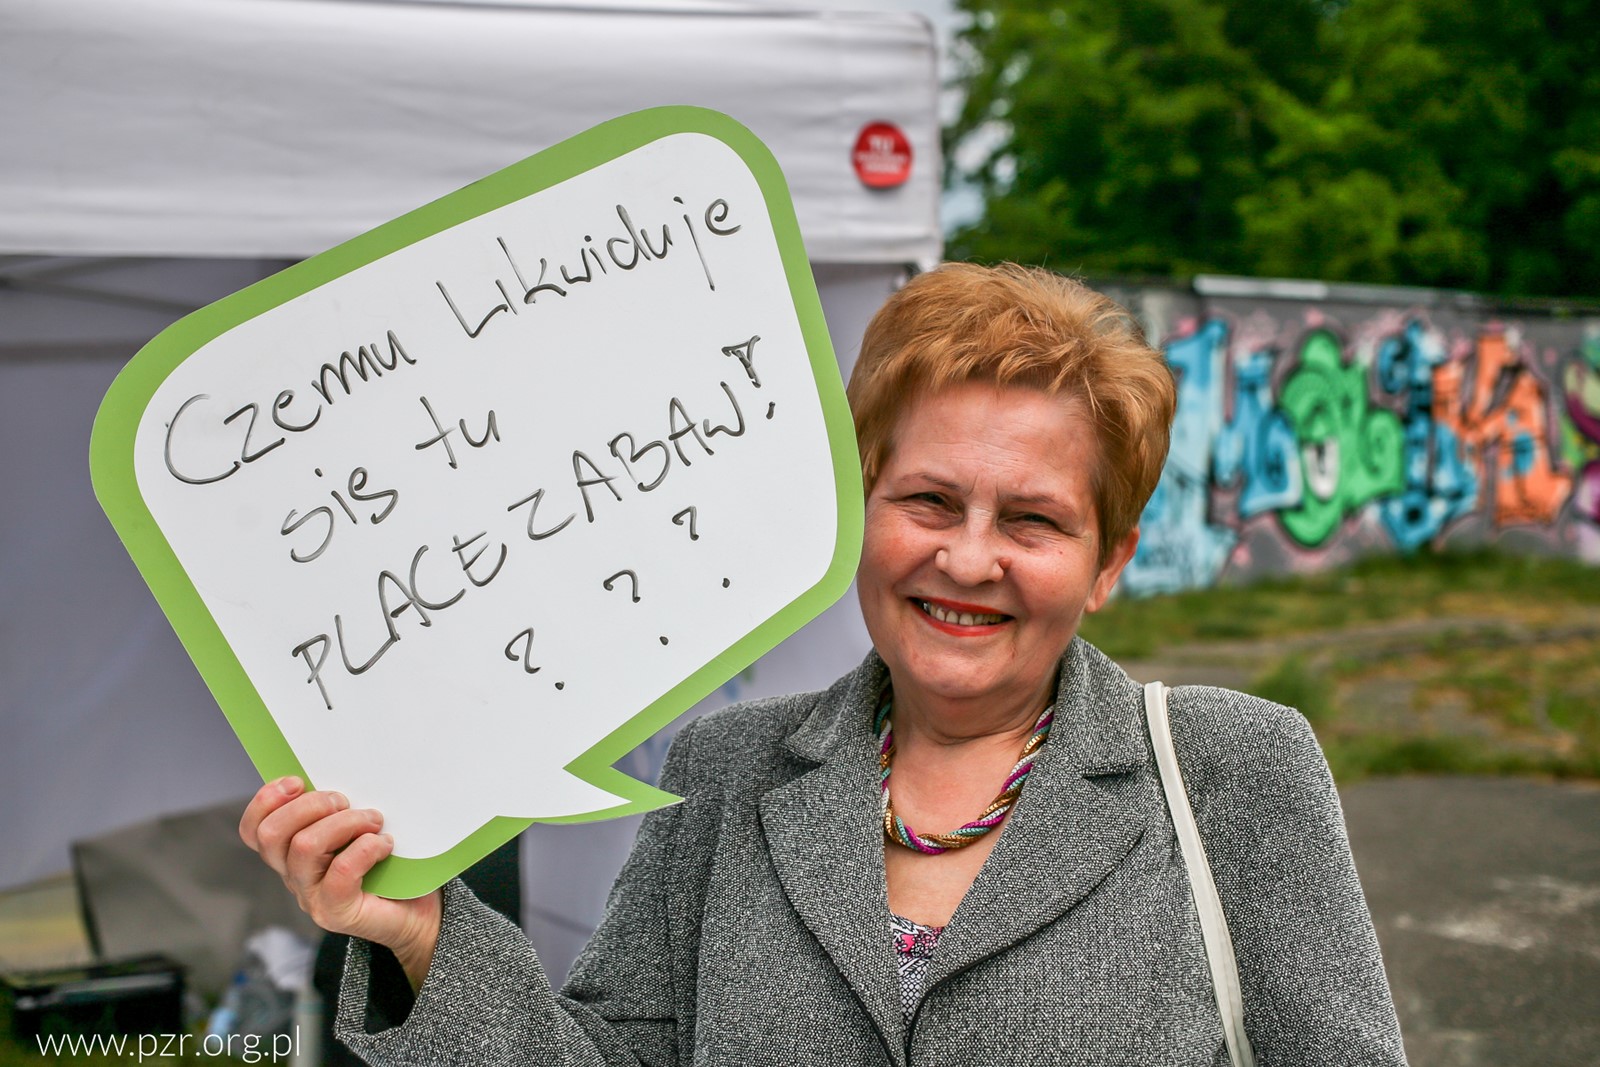 Czemu Likwiduje
się tu
PLACE ZABAW!
? ? ?
TU
www.pzr.org.pl